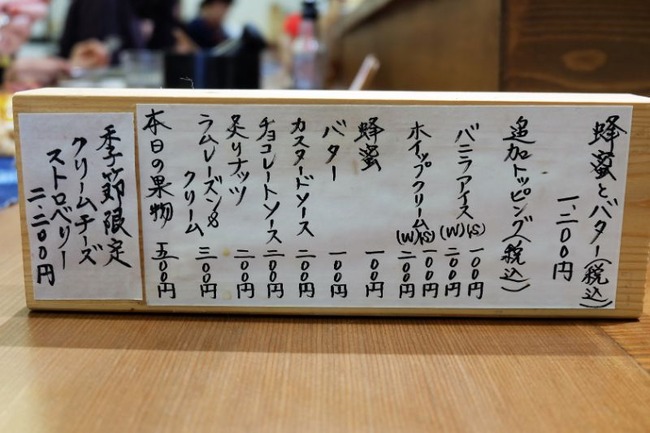 蜂蜜とバター(税込)
一、二〇〇円
追加トッピング(税込)
バニラアイス(S) 一〇〇円
(W) 二〇〇円
ホイップクリーム(S) 一〇〇円
(W) 二〇〇円
蜂蜜 一〇〇円
バター 一〇〇円
カスタードソース 二〇〇円
チョコレートソース 二〇〇円
炙りナッツ 二〇〇円
ラムレーズン&
クリーム 三〇〇円
本日の果物 五〇〇円
季節限定
クリームチーズ
ストロベリー
二、二〇〇円